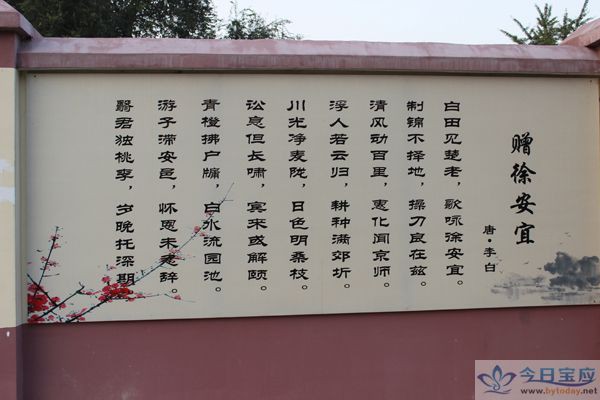 赠徐安宜
唐·李白
白田见楚老，歌咏徐安宜。
制锦不择地，操刀良在兹。
清风动百里，惠化闻京师。
浮人若云归，耕种满郊圻。
川光净麦陇，日色明桑枝。
讼息但长啸，宾来或解颐。
青橙拂户牖，白水流园池。
游子滞安邑，怀恩未忍辞。
翳君独桃李，岁晚托深期。
今日宝应
www.bytoday.net